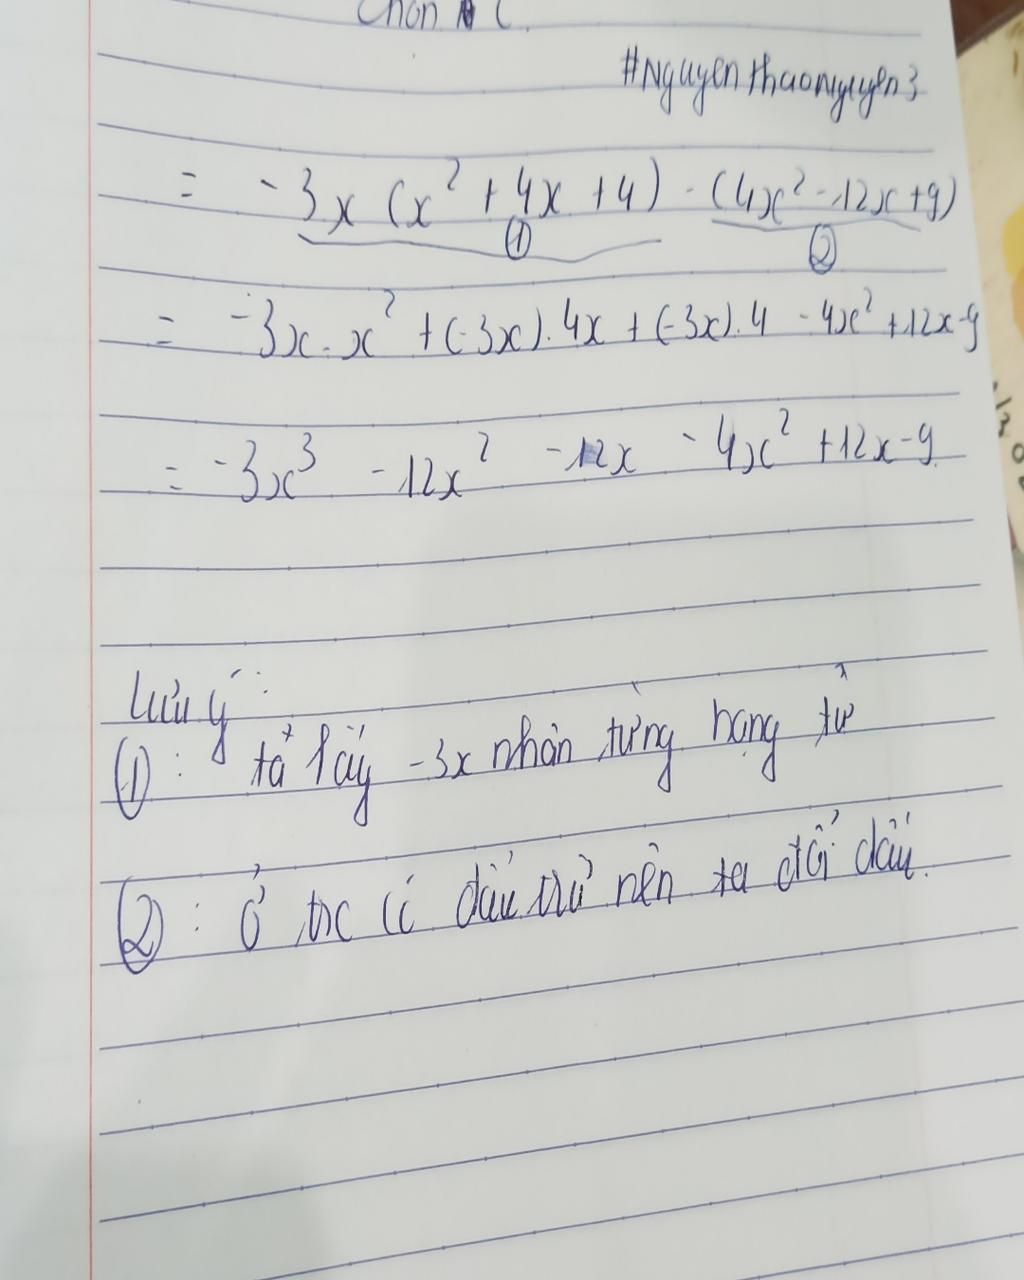 Chọn C
#Nguyenthaonguyen3
= -3x (x² + 4x + 4) - (4x² - 12x + 9)
① ②
= -3x . x² + (-3x) . 4x + (-3x) . 4 - 4x² + 12x - 9
= -3x³ - 12x² - 12x - 4x² + 12x - 9
Lưu ý :
① : ta lấy -3x nhân từng hạng tử
② : ở trc có dấu trừ nên ta đổi dấu.